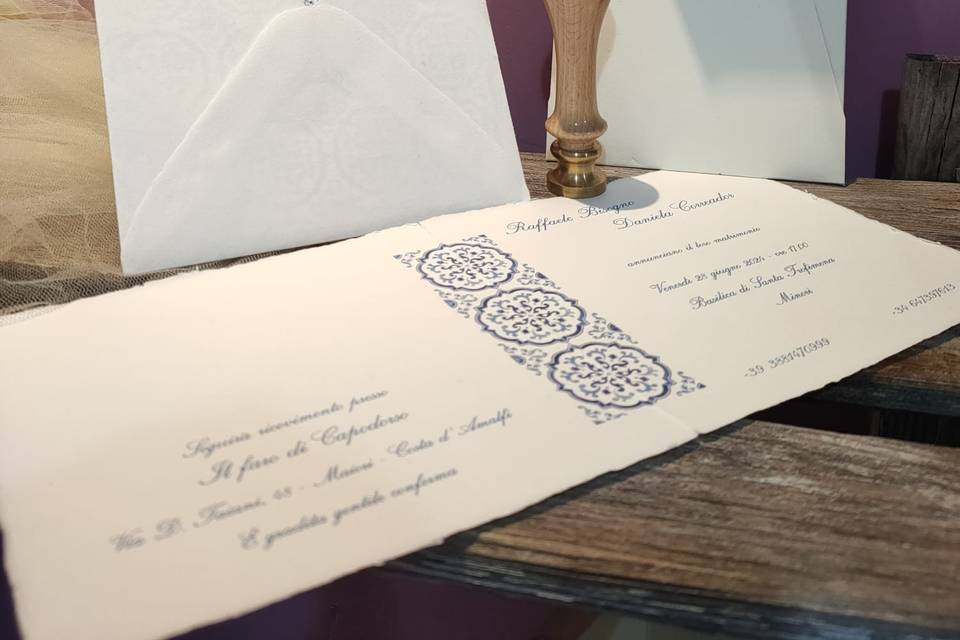 Raffaele Bisogno
Daniela Correador
annunciano il loro matrimonio
Venerdì 28 giugno 2024 - ore 17.00
Basilica di Santa Trofimena
Minori
+39 3881470999
+34 647397613
Seguirà ricevimento presso
Il faro di Capodorso
Via D. Taiani, 48 - Maiori - Costa d'Amalfi
È gradita gentile conferma